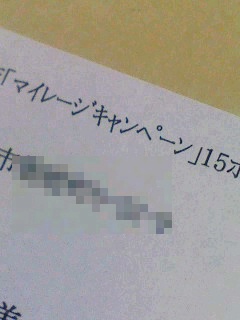 「マイレージキャンペーン」15ポ
市